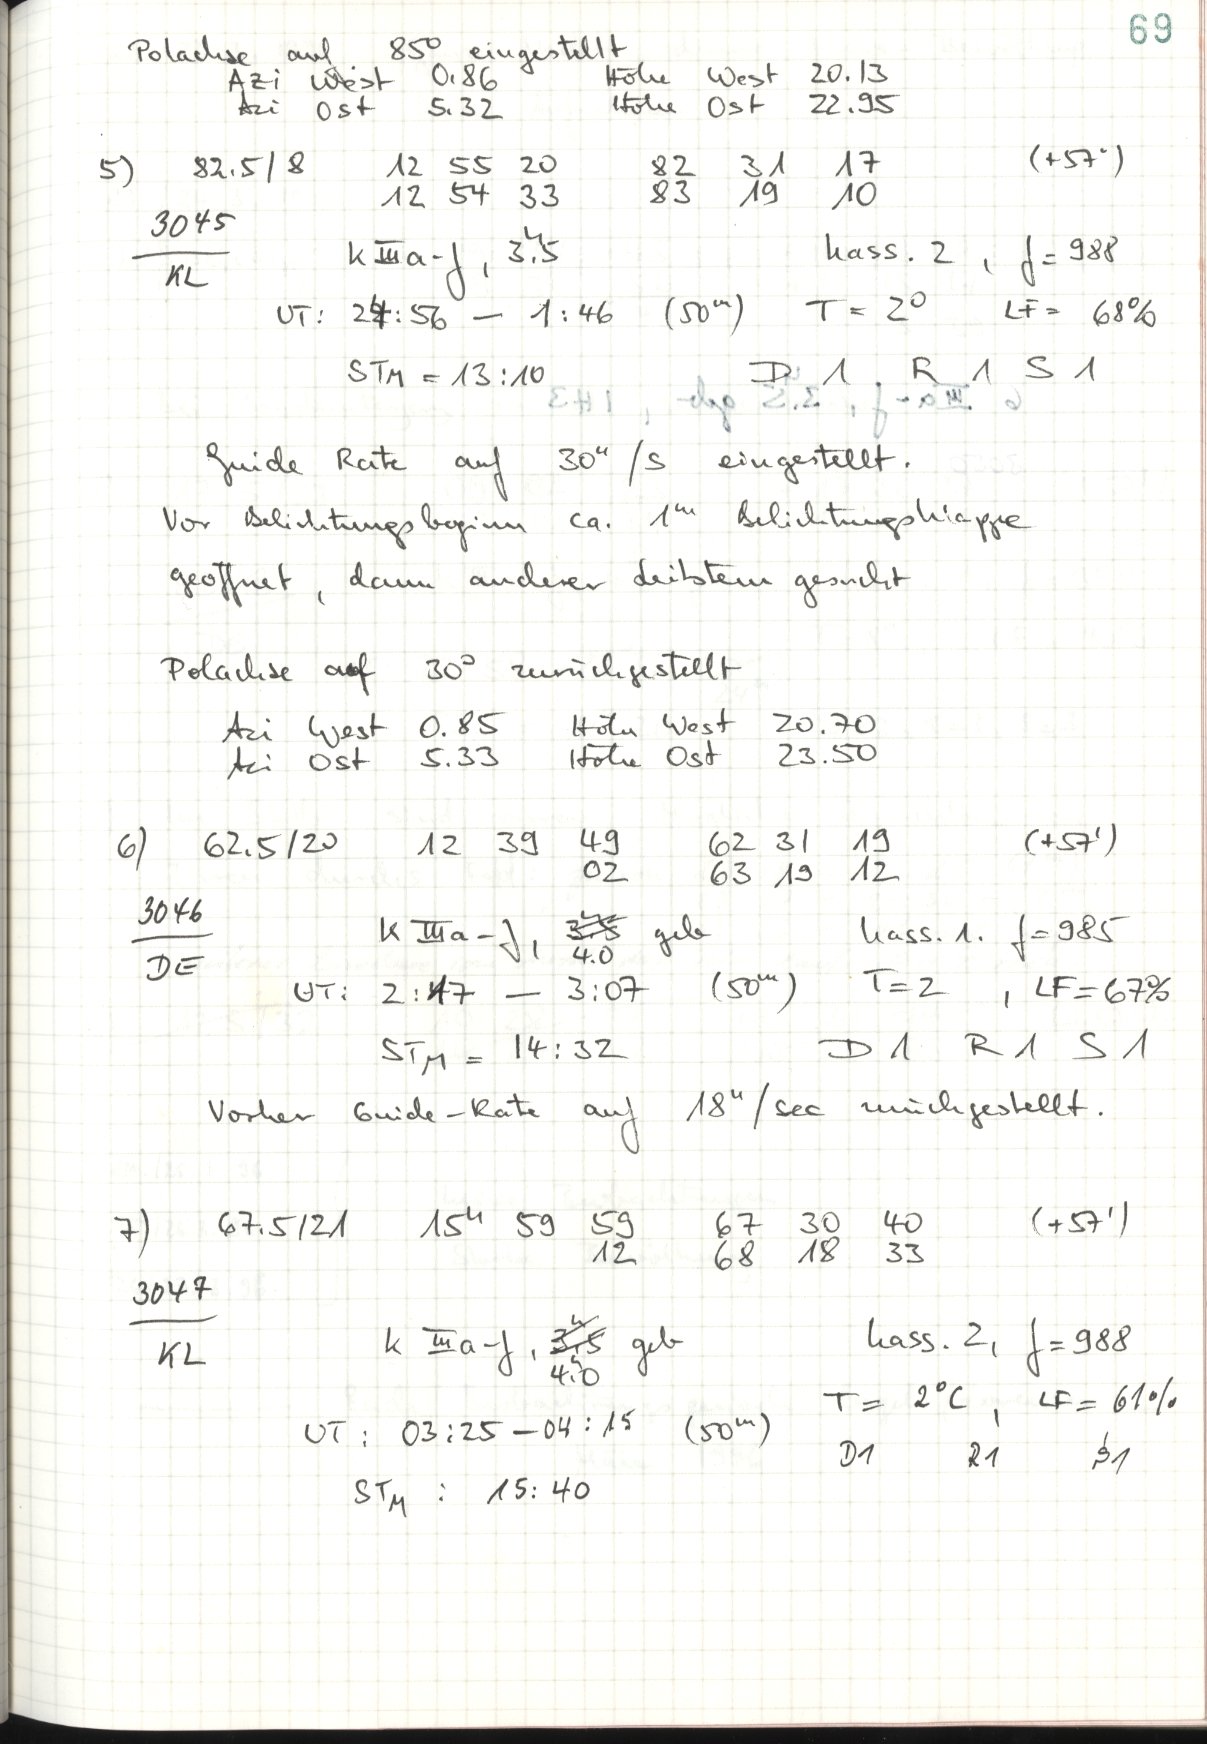 69
Polachse auf 85° eingestellt
Azi West 0.86 Höhe West 20.13
Azi Ost 5.32 Höhe Ost 22.95
5) 82.5/8 12 55 20 82 31 17 (+57')
12 54 33 83 19 10
3045
KL
k IIIa-f, 3.5 kass. 2, f=988
UT: :56 — 1:46 (50m) T = 2° LF = 68%
STM = 13:10 D 1 R 1 S 1
Guide Rate auf 30"/s eingestellt.
Vor Belichtungsbeginn ca. 1m Belichtungsklappe
geöffnet, dann anderer Leitstern gesucht
Polachse auf 30° zurückgestellt
Azi West 0.85 Höhe West 20.70
Azi Ost 5.33 Höhe Ost 23.50
6) 62.5/20 12 39 49 62 31 19 (+57')
02 63 19 12
3046
DE
k IIIa-f, 3.5 geb kass. 1. f=985
4.0
UT: 2:17 — 3:07 (50m) T=2, LF=67%
STM = 14:32 D 1 R 1 S 1
Vorher Guide-Rate auf 18"/sec zurückgestellt.
7) 67.5/21 15h 59 59 67 30 40 (+57')
12 68 18 33
3047
KL
k IIIa-f, 3.5 geb kass. 2, f=988
4.0
T = 2°C, LF = 61%
UT: 03:25 — 04:15 (50m)
D1 R1 S1
STM : 15:40